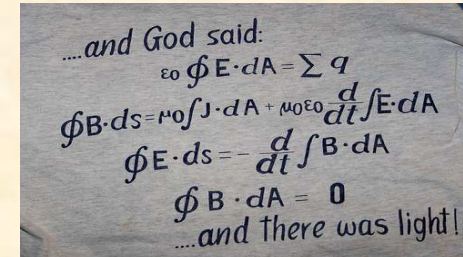 ....and God said:
εo ∮E·dA=∑ q
∮B·ds=μo∫J·dA + μoεo d/dt ∫E·dA
∮E·ds=- d/dt ∫B·dA
∮B·dA = 0
....and there was light!